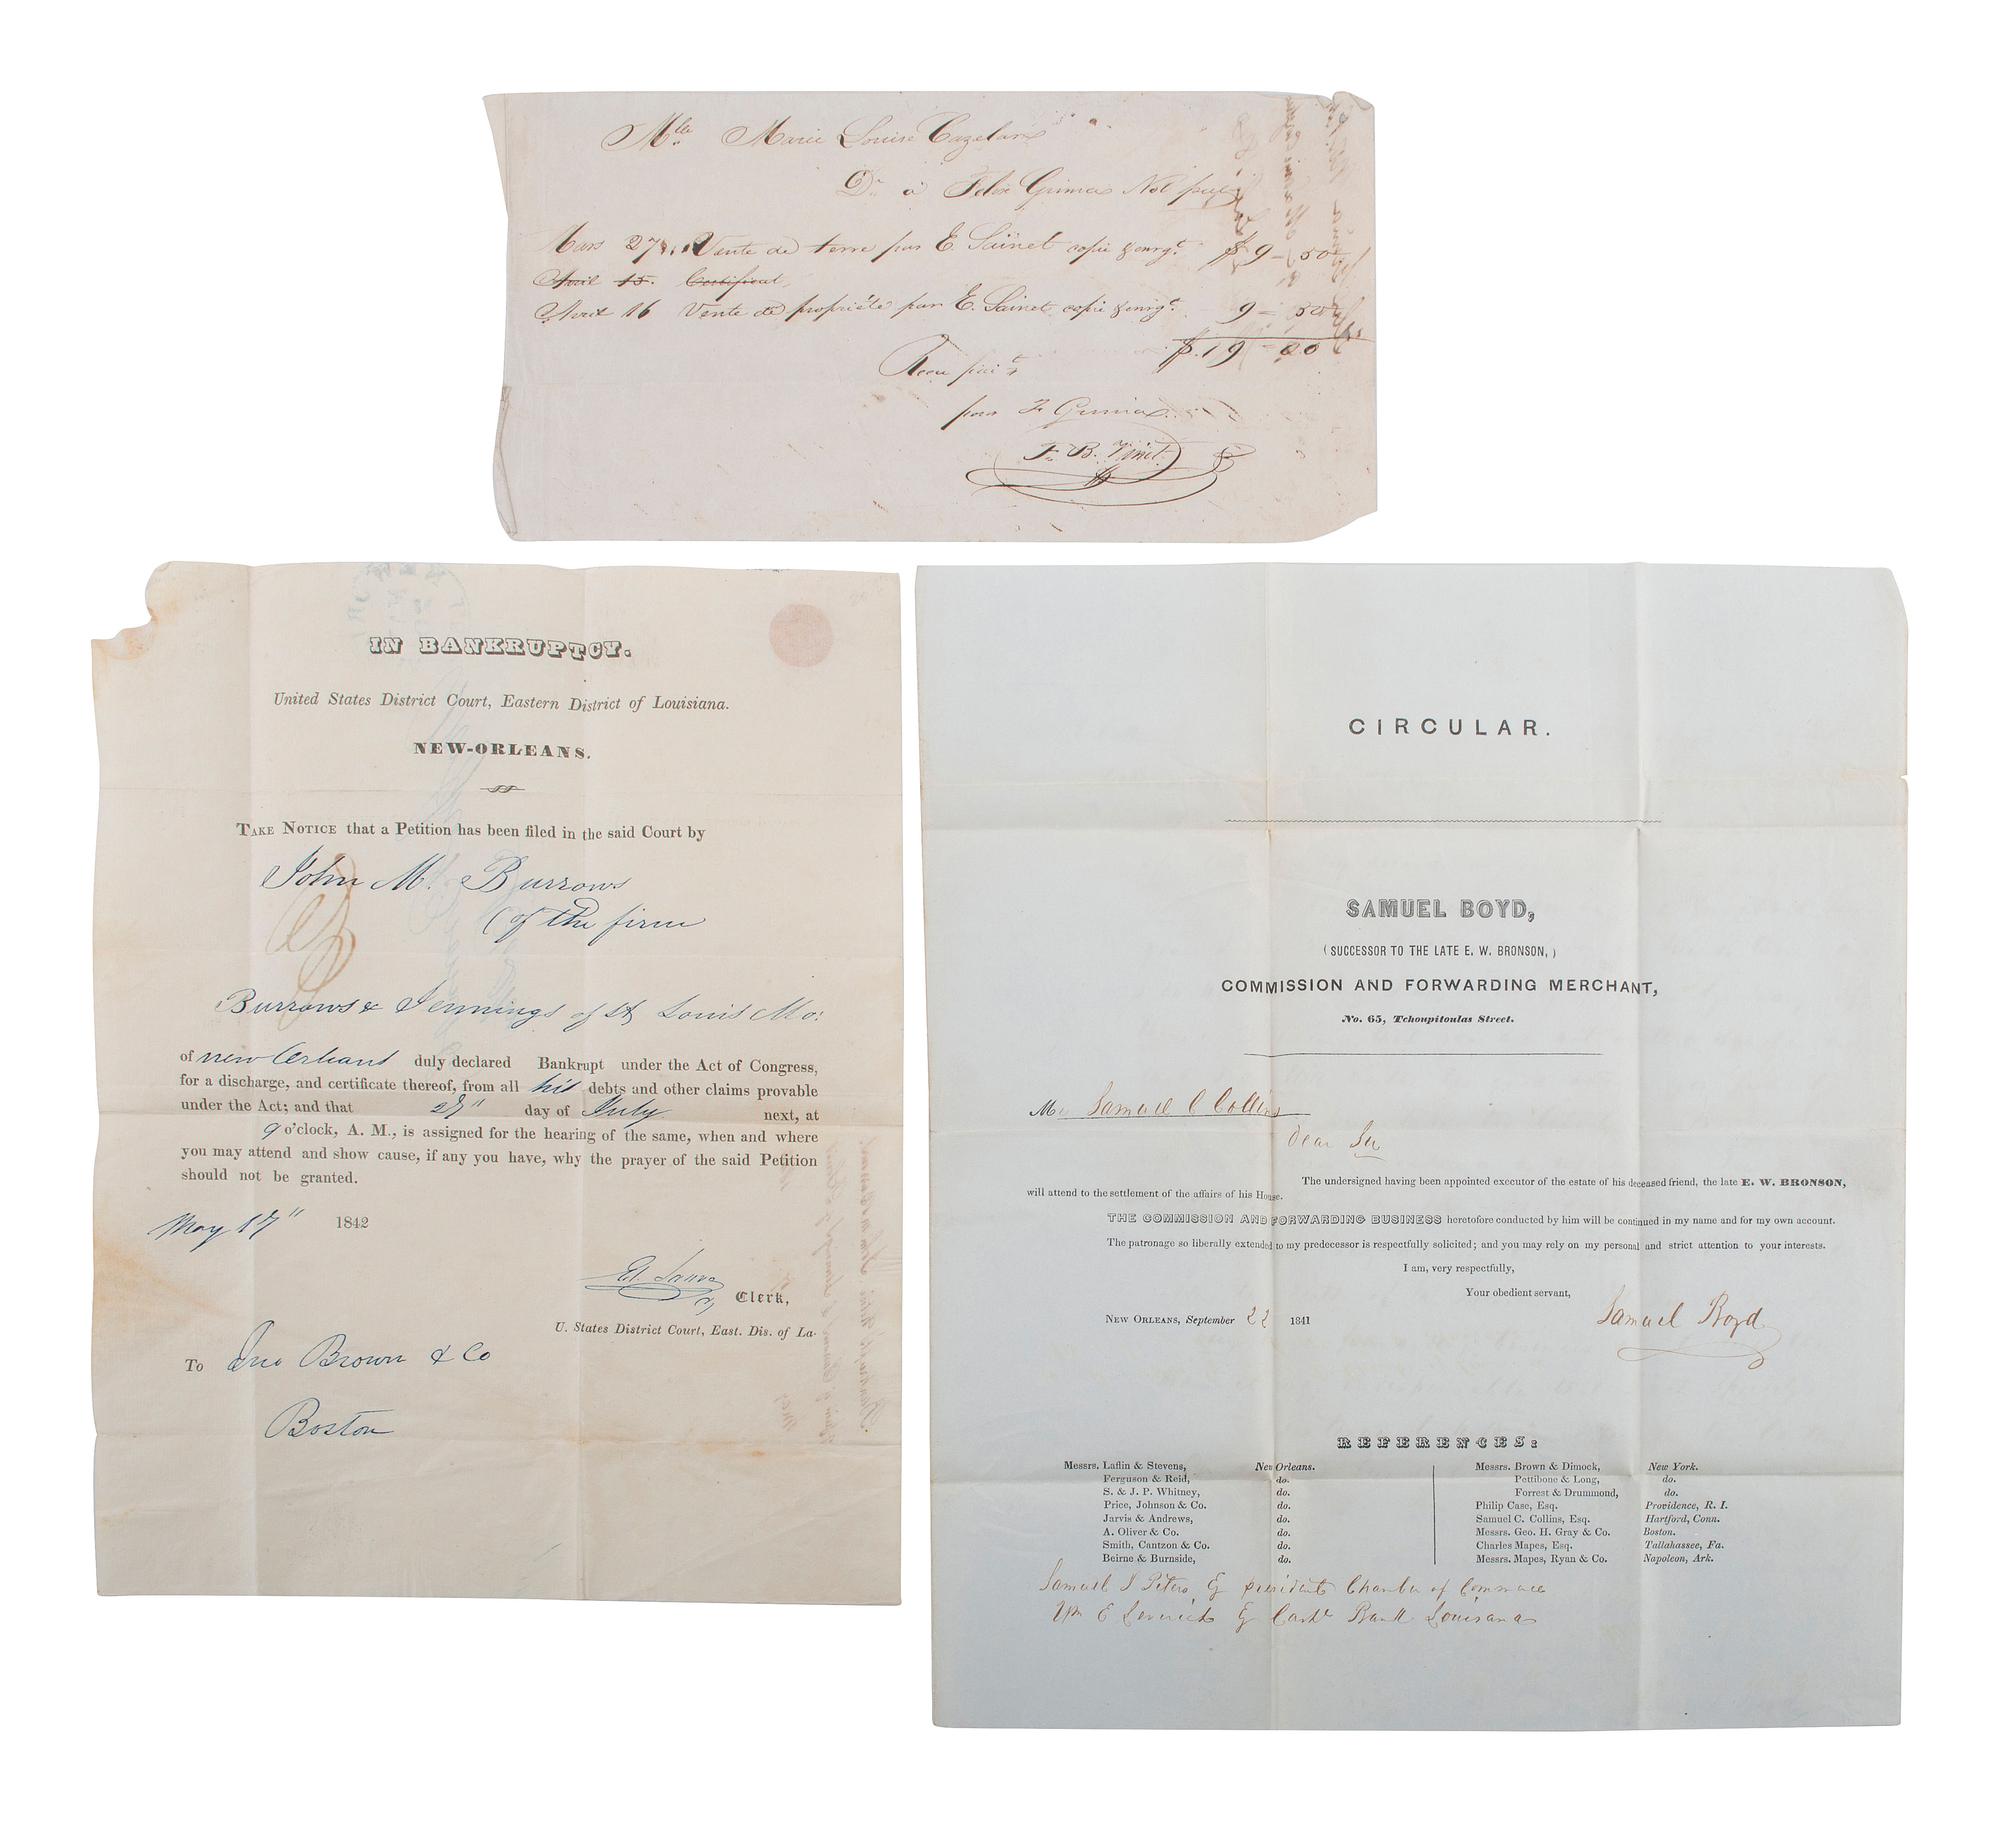 Mlle Marie Louise Cazelar
Dr à Felix Grima Not pub
Mars 27 Vente de terre par E. Sainet copie & enrgt $ 9 - 50
Avril 15. Certificat
Avril 16 Vente de propriété par E. Sainet copie & enrgt 9 = 50
$.19 = 00
Recu pait
pour F. Grima
F. B. Vinet
IN BANKRUPTCY.
United States District Court, Eastern District of Louisiana.
NEW-ORLEANS.
TAKE NOTICE that a Petition has been filed in the said Court by
John M. Burrows
(of the firm
Burrows & Jennings of St Louis Mo:
of new Orleans duly declared Bankrupt under the Act of Congress,
for a discharge, and certificate thereof, from all his debts and other claims provable
under the Act; and that 27" day of July next, at
9 o'clock, A. M., is assigned for the hearing of the same, when and where
you may attend and show cause, if any you have, why the prayer of the said Petition
should not be granted.
May 17" 1842
Clerk,
U. States District Court, East. Dis. of La.
To Jno Brown & Co
Boston
CIRCULAR.
SAMUEL BOYD,
(SUCCESSOR TO THE LATE E. W. BRONSON,)
COMMISSION AND FORWARDING MERCHANT,
No. 65, Tchoupitoulas Street.
Mr Samuel C Collins
Dear Sir
The undersigned having been appointed executor of the estate of his deceased friend, the late E. W. BRONSON,
will attend to the settlement of the affairs of his House.
THE COMMISSION AND FORWARDING BUSINESS heretofore conducted by him will be continued in my name and for my own account.
The patronage so liberally extended to my predecessor is respectfully solicited; and you may rely on my personal and strict attention to your interests.
I am, very respectfully,
Your obedient servant,
NEW ORLEANS, September 22 1841
Samuel Boyd
REFERENCES:
Messrs. Laflin & Stevens, New Orleans.
Ferguson & Reid, do.
S. & J. P. Whitney, do.
Price, Johnson & Co. do.
Jarvis & Andrews, do.
A. Oliver & Co. do.
Smith, Cantzon & Co. do.
Beirne & Burnside, do.
Messrs. Brown & Dimock, New York.
Pettibone & Long, do.
Forrest & Drummond, do.
Philip Case, Esq. Providence, R. I.
Samuel C. Collins, Esq. Hartford, Conn.
Messrs. Geo. H. Gray & Co. Boston.
Charles Mapes, Esq. Tallahassee, Fa.
Messrs. Mapes, Ryan & Co. Napoleon, Ark.
Samuel J Peters president Chamber of Commerce
Wm E Leverich Bank Louisiana